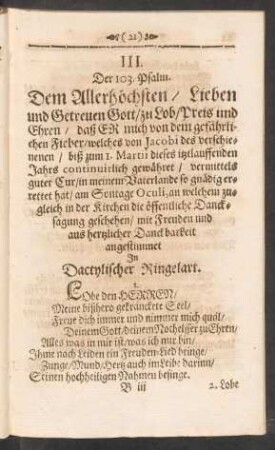 (21)
III.
Der 103. Psalm.
Dem Allerhöchsten/ Lieben
und Getreuen Gott/ zu Lob/ Preis und
Ehren/ daß ER mich von dem gefährli-
chen Fieber/ welches von Jacobi des verschie-
nenen/ biß zum 1. Martii dieses itzlauffenden
Jahrs continuirlich gewähret/ vermittels
guter Cur/ in meinem Vaterlande so gnädig er-
rettet hat/ am Sontage Oculi, an welchem zu-
gleich in der Kirchen die öffentliche Danck-
sagung geschehen/ mit Freuden und
aus hertzlicher Danckbarkeit
angestimmet
In
Dactylischer Ringelart.
1.
LObe den HERREN/
Meine bißhero gekränckete Seel/
Freue dich immer und nimmer mich quäl/
Deinem Gott/ deinem Nothelffer zu Ehren/
Alles was in mir ist/ was ich nur bin/
Ihme nach Leiden ein Freuden-Lied bringe/
Zunge/ Mund/ Hertz auch im Leibe darinn/
Seinen hochheiligen Nahmen besinge.
B iii
2. Lobe